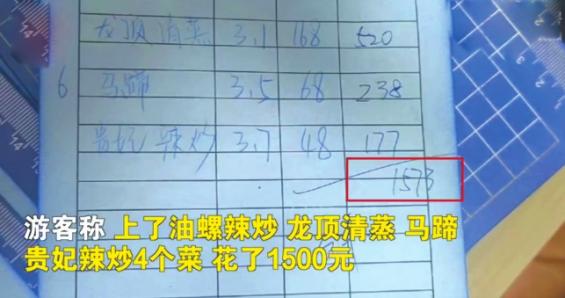 龙顶清蒸 3.1 168 520
6 马蹄 3.5 68 238
贵妃 辣炒 3.7 48 177
1573
游客称 上了油螺辣炒 龙顶清蒸 马蹄
贵妃辣炒4个菜 花了1500元